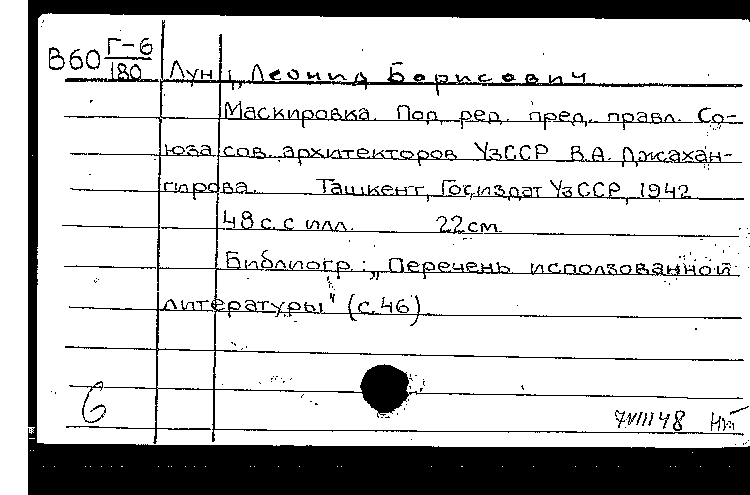 В60 Г-6/180 Лунц, Леонид Борисович
Маскировка. Под ред. пред. правл. Со-
юза сов. архитекторов УзССР В.А. Джахан-
гирова. Ташкент, Госиздат УзССР, 1942
48 с. с илл. 22 см.
Библиогр.: „Перечень использованной
литературы" (с. 46)
6
7 VIII 48